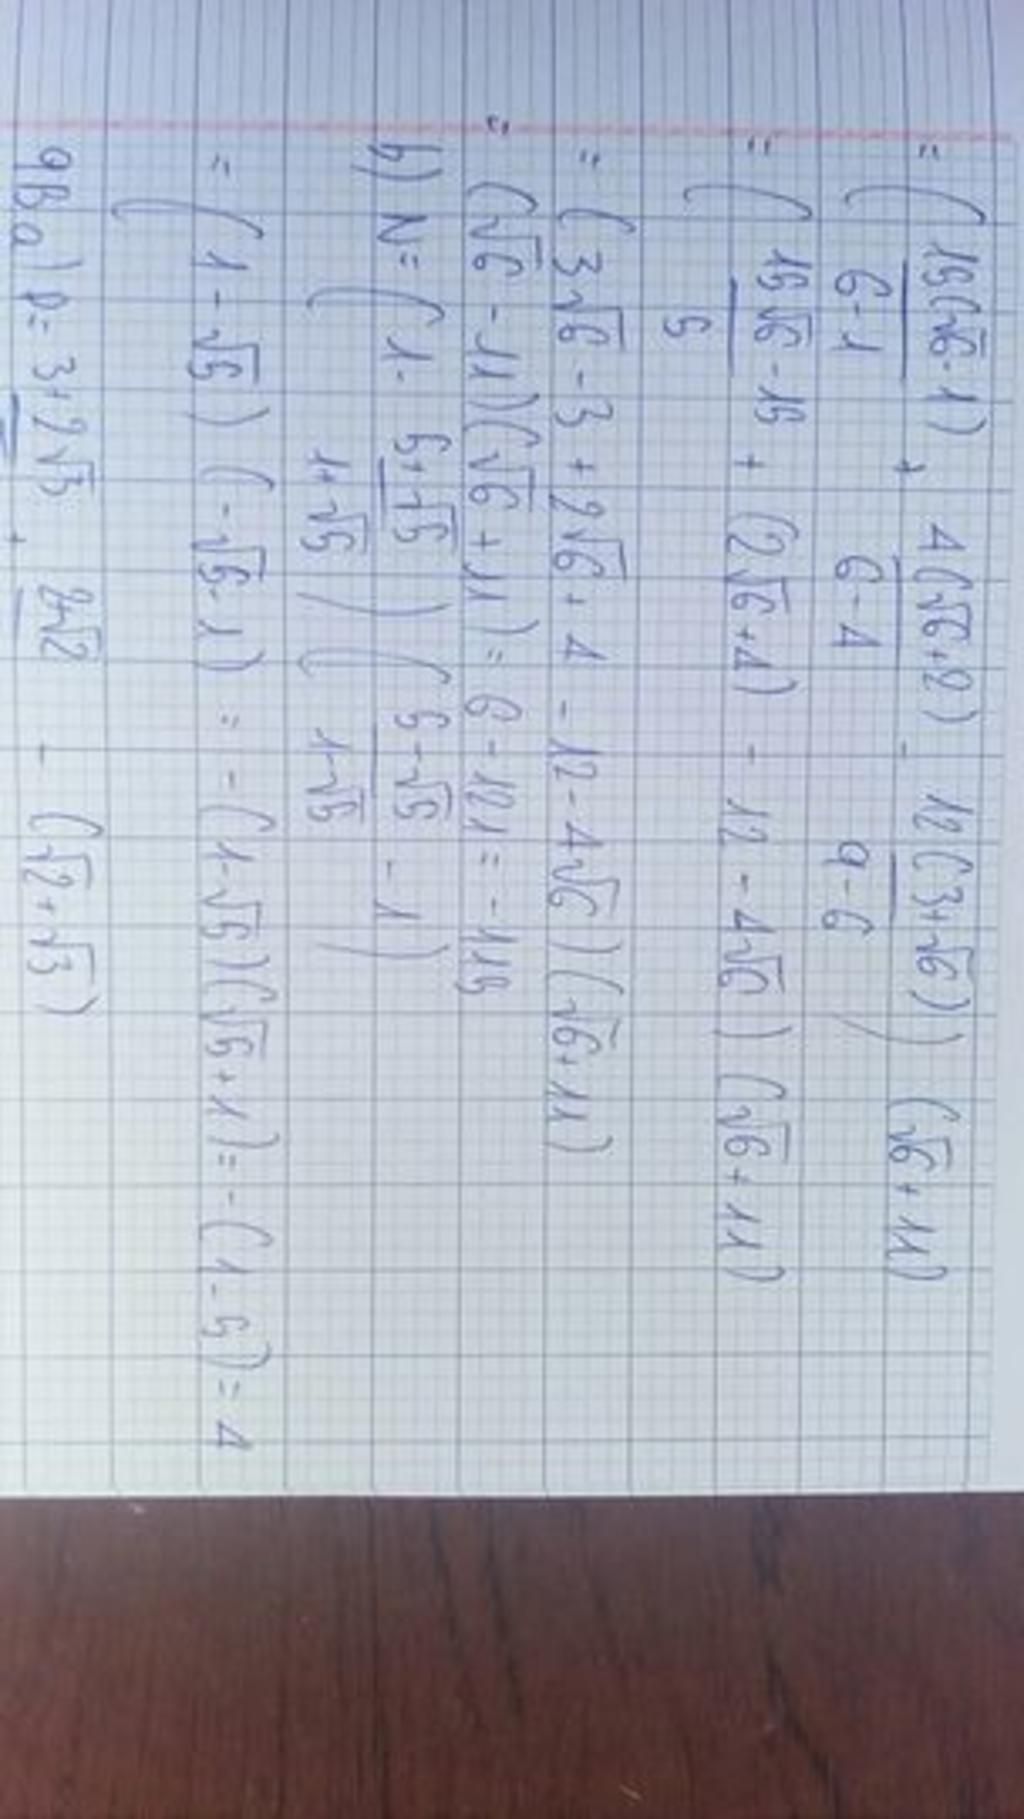 = ( 15(√6-1) / 6-1 + 4(√6+2) / 6-4 - 12(3+√6) / 9-6 ) (√6+11)
= ( 15√6-15 / 5 + (2√6+4) - 12 - 4√6 ) (√6+11)
= (3√6-3+2√6+4-12-4√6)(√6+11)
= (√6-11)(√6+11) = 6-121 = -115
b) N = ( 1 - 5+√5 / 1+√5 ) ( 5-√5 / 1-√5 - 1 )
= (1-√5)(-√5-1) = -(1-√5)(√5+1) = -(1-5) = 4
9Ba) P = 3+2√3 + 2+√2 - (√2+√3)